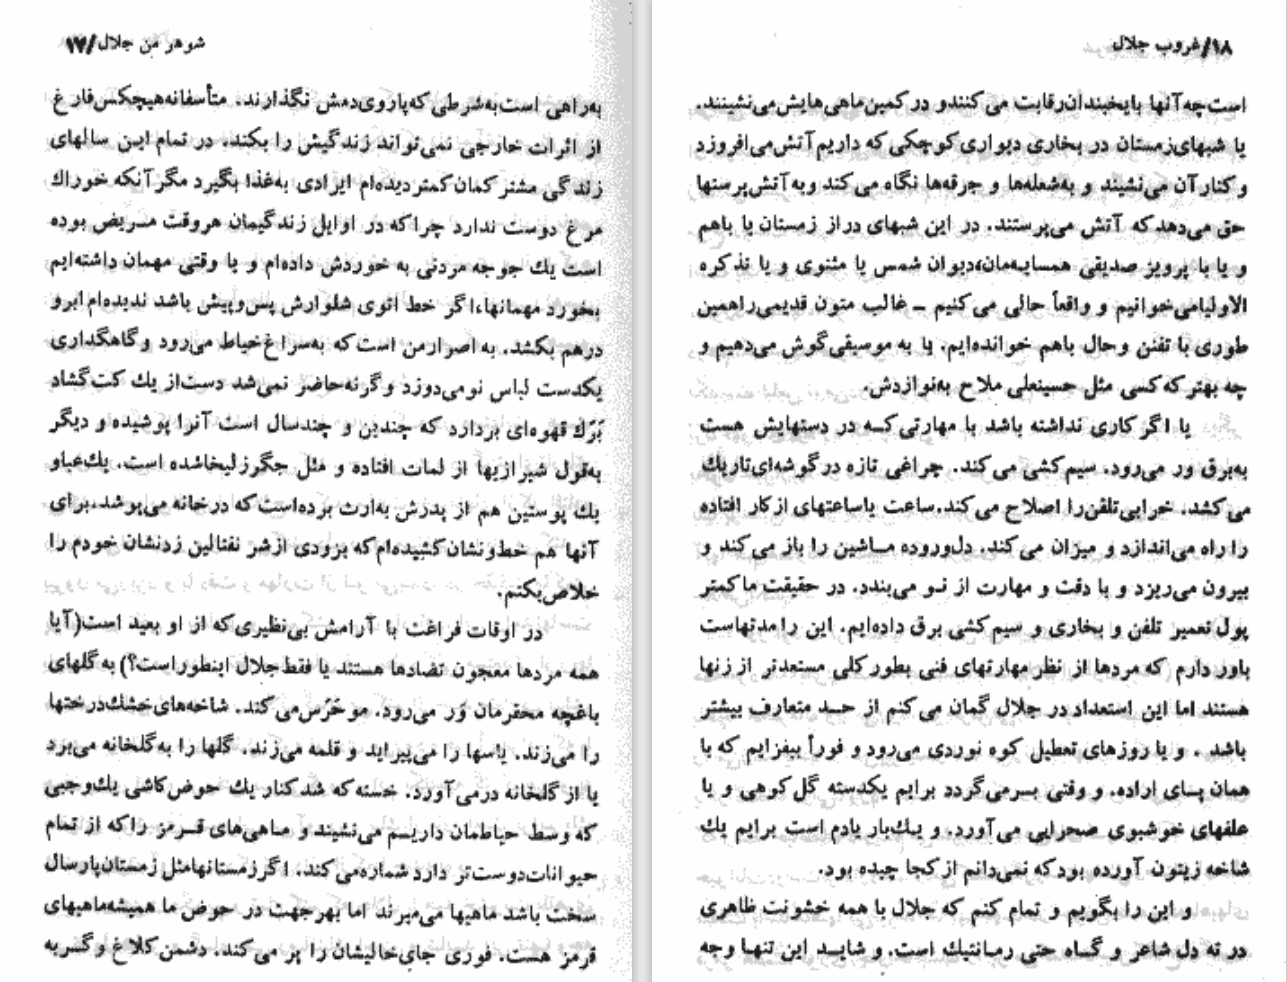 شوهر من جلال/۱۷
به‌راهی است‌به‌شرطی که‌پاروی‌دمش نگذارند. متأسفانه‌هیچکس‌فارغ
از اثرات خارجی نمی‌تواند زندگیش را بکند. در تمام این سالهای
زندگی مشترکمان کمتر دیده‌ام ایرادی به‌غذا بگیرد مگر آنکه خوراك
مرغ دوست ندارد چرا که در اوایل زندگیمان هروقت مریض بوده
است یك جوجه مردنی به خوردش داده‌ام و یا وقتی مهمان داشته‌ایم
بخورد مهمانها،اگر خط اتوی شلوارش پس‌وپیش باشد ندیده‌ام ابرو
درهم بکشد. به اصرار من است که به‌سراغ‌خیاط می‌رود و گاهگداری
یکدست لباس نو می‌دوزد و گرنه‌حاضر نمی‌شد دست‌از یك کت گشاد
بَرَك قهوه‌ای بردارد که چندین و چندسال است آنرا پوشیده و دیگر
به‌قول شیرازیها از لمات افتاده و مثل جگر زلیخاشده است. یك‌عباو
یك پوستین هم از پدرش به‌ارث برده‌است که درخانه می‌پوشد.برای
آنها هم خط‌ونشان‌کشیده‌ام‌که بزودی ازشر نفتالین زدنشان خودم را
خلاص‌بکنم.
در اوقات فراغت با آرامش بی‌نظیری که از او بعید است(آیا
همه مردها معجون تضادها هستند یا فقط‌جلال اینطوراست؟) به گلهای
باغچه محقرمان وَر می‌رود. مو حَرَس می کند. شاخه‌های‌خشك‌درختها
را می‌زند. یاسها را می‌پیراید و قلمه می‌زند. گلها را به‌گلخانه می‌برد
یا از گلخانه درمی‌آورد. خسته که شد کنار یك حوض‌کاشی یك‌وجبی
که وسط حیاطمان داریـم می‌نشیند و مـاهی‌های قـرمز را که از تمام
حیوانات‌دوست‌تر دارد شماره‌می‌کند. اگرزمستانهامثل‌زمستان‌پارسال
سخت باشد ماهیها می‌میرند اما بهرجهت در حوض ما همیشه‌ماهیهای
قرمز هست. فوری جای‌خالیشان را پر می کند. دشمن کلاغ و گربه
۱۸/غروب جلال
است‌چه آنها بایخبندان‌رقابت می کنندو در کمین‌ماهی‌هایش‌می‌نشینند.
یا شبهای‌زمستان در بخاری دیواری‌کوچکی که داریم‌آتش‌می‌افروزد
و کنارآن می‌نشیند و به‌شعله‌ها و جرقه‌ها نگاه می کند و به آتش‌پرستها
حق می‌دهد که آتش می‌پرستند. در این شبهای دراز زمستان یا باهم
و یا با پرویز صدیقی همسایـه‌مان،دیوان شمس یا مثنوی و یا تذکره
الاولیامی‌خوانیم و واقعاً حالی می کنیم ــ غالب متون قدیمی‌راهمین
طوری با تفنن و حال باهم خوانده‌ایم. یا به موسیقی گوش می‌دهیم و
چه بهتر که کسی مثل حسینعلی ملاح به‌نوازدش.
یا اگر کاری نداشته باشد با مهارتی کـه در دستهایش هست
به‌برق ور می‌رود. سیم کشی می کند. چراغی تازه در گوشه‌ای‌تاریك
می کشد. خرابی‌تلفن‌را اصلاح می کند.ساعت یاساعتهای از کار افتاده
را راه می‌اندازد و میزان می کند. دل‌وروده مـاشین را باز می کند و
بیرون می‌ریزد و با دقت و مهارت از نـو می‌بندد. در حقیقت ما کمتر
پول تعمیر تلفن و بخاری و سیم کشی برق داده‌ایم. این را مدتهاست
باور دارم که مردها از نظر مهارتهای فنی بطور کلی مستعدتر از زنها
هستند اما این استعداد در جلال گمان می کنم از حـد متعارف بیشتر
باشد . و یا روزهای تعطیل کوه نوردی می‌رود و فوراً بیفزایم که با
همان پـای اراده. و وقتی بـرمی‌گردد برایم یکدسته گل کوهی و یا
علفهای خوشبوی صحرایی می‌آورد. و یـك‌بار یادم است برایم یك
شاخه زیتون آورده بود که نمی‌دانم از کجا چیده بود.
و این را بگویم و تمام کنم که جلال با همه خشونت ظاهری
در ته دل شاعر و گـاه حتی رمـانتیك است. و شایـد این تنهـا وجه